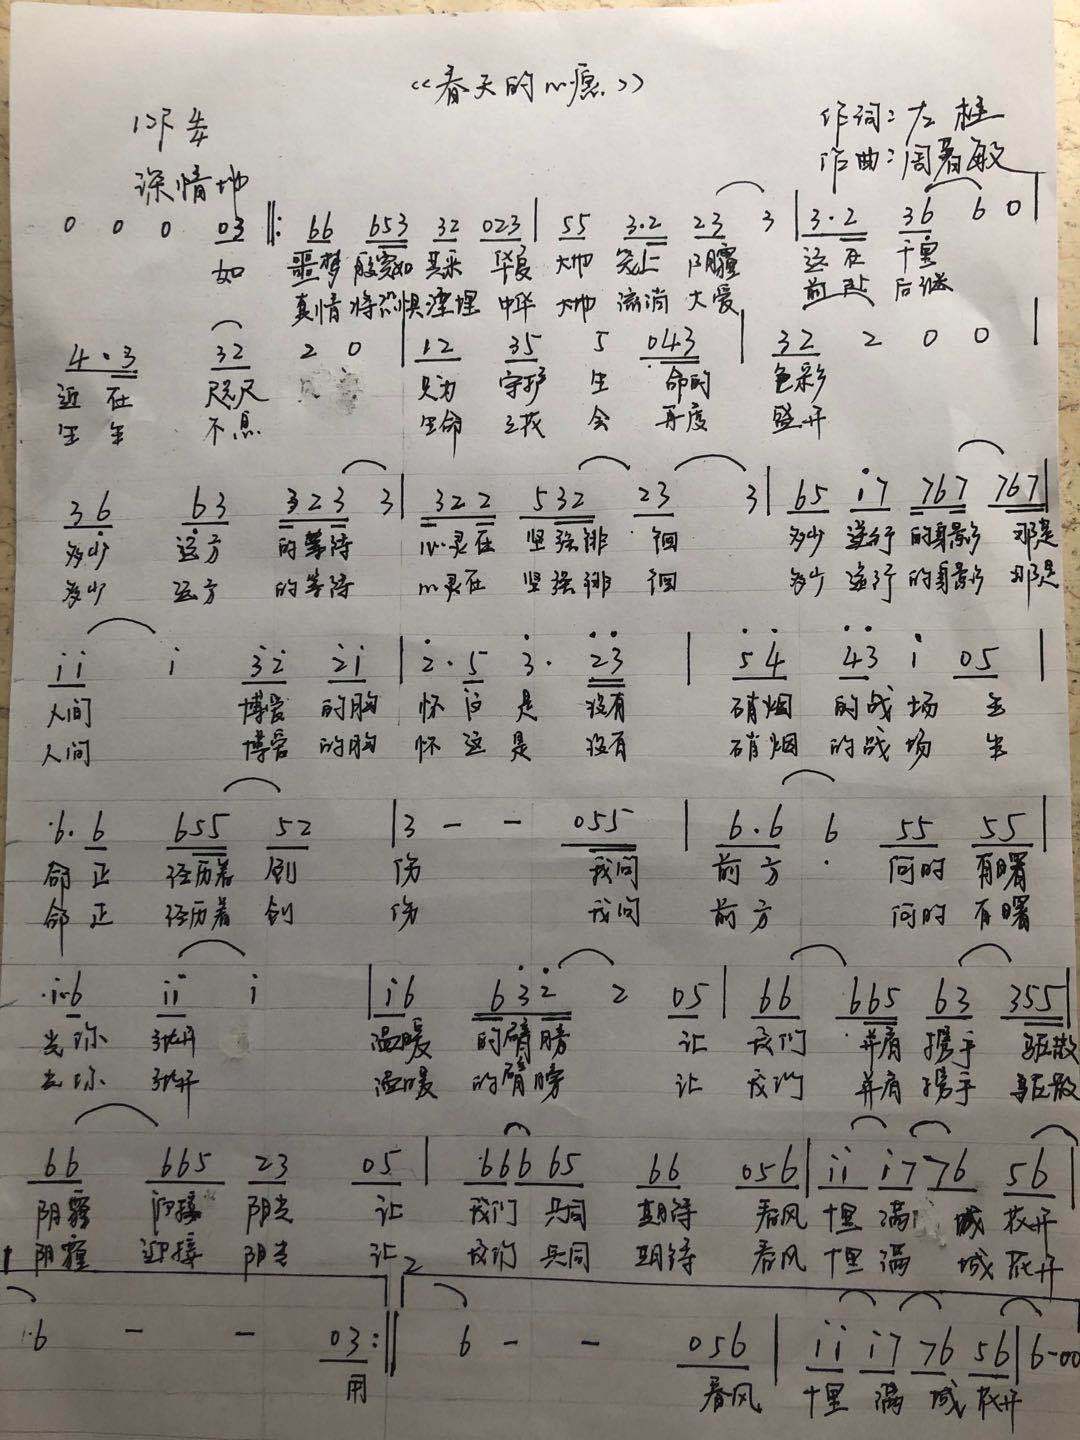 《春天的心愿》
作词:左桂
作曲:周春敏
深情地
0 0 0 03 ‖: 66 653 32 023 | 55 3·2 23 3 | 3·2 36 6 0 |
如 噩梦 般突如其来 华夏 大地 免上 阴霾 远在 千里
真情 将恐惧湮埋 中华 大地 流淌 大爱 前赴 后继
4·3 32 2 0 | 12 35 5 043 | 32 2 0 0 |
近在 咫尺 只为 守护 生 命的 色彩
生生 不息 生命 之花 会 再度 盛开
36 63 323 3 | 322 532 23 3 | 65 i7 767 767 |
多少 远方 的等待 心灵在 坚强徘 徊 多少 逆行 的身影 那是
多少 远方 的等待 心灵在 坚强徘 徊 多少 逆行 的身影 那是
ii i 32 2i | 2·5 3· 23 | 54 43 i 05 |
人间 博爱 的胸 怀 这 是 没有 硝烟 的战 场 生
人间 博爱 的胸 怀 这 是 没有 硝烟 的战 场 生
6·6 655 52 | 3 - - 055 | 6·6 6 55 55 |
命 正 经历着 创 伤 我问 前方 何时 有曙
命 正 经历着 创 伤 我问 前方 何时 有曙
i·6 ii i | i6 632 2 05 | 66 665 63 355
光 你 张开 温暖 的臂膀 让 我们 并肩 携手 驱散
光 你 张开 温暖 的臂膀 让 我们 并肩 携手 驱散
66 665 23 05 | 666 65 66 056 | ii i7 76 56
阴霾 迎接 阳光 让 我们 共同 期待 春风 十里 满 城 花开
阴霾 迎接 阳光 让 我们 共同 期待 春风 十里 满 城 花开
1 2
6 - - 03 :‖ 6 - - 056 | ii i7 76 56 | 6-00
用 春风 十里 满 城 花开